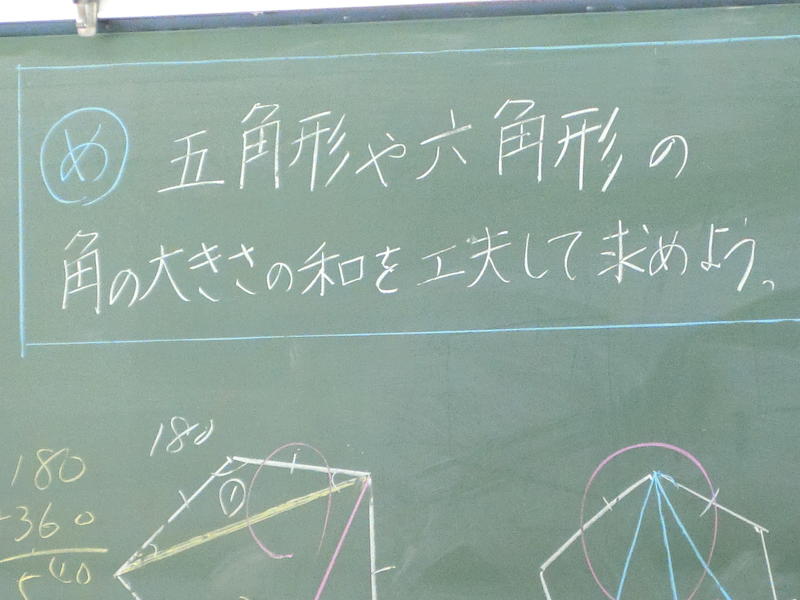 め 五角形や六角形の
角の大きさの和を工夫して求めよう。
180
180
①
360